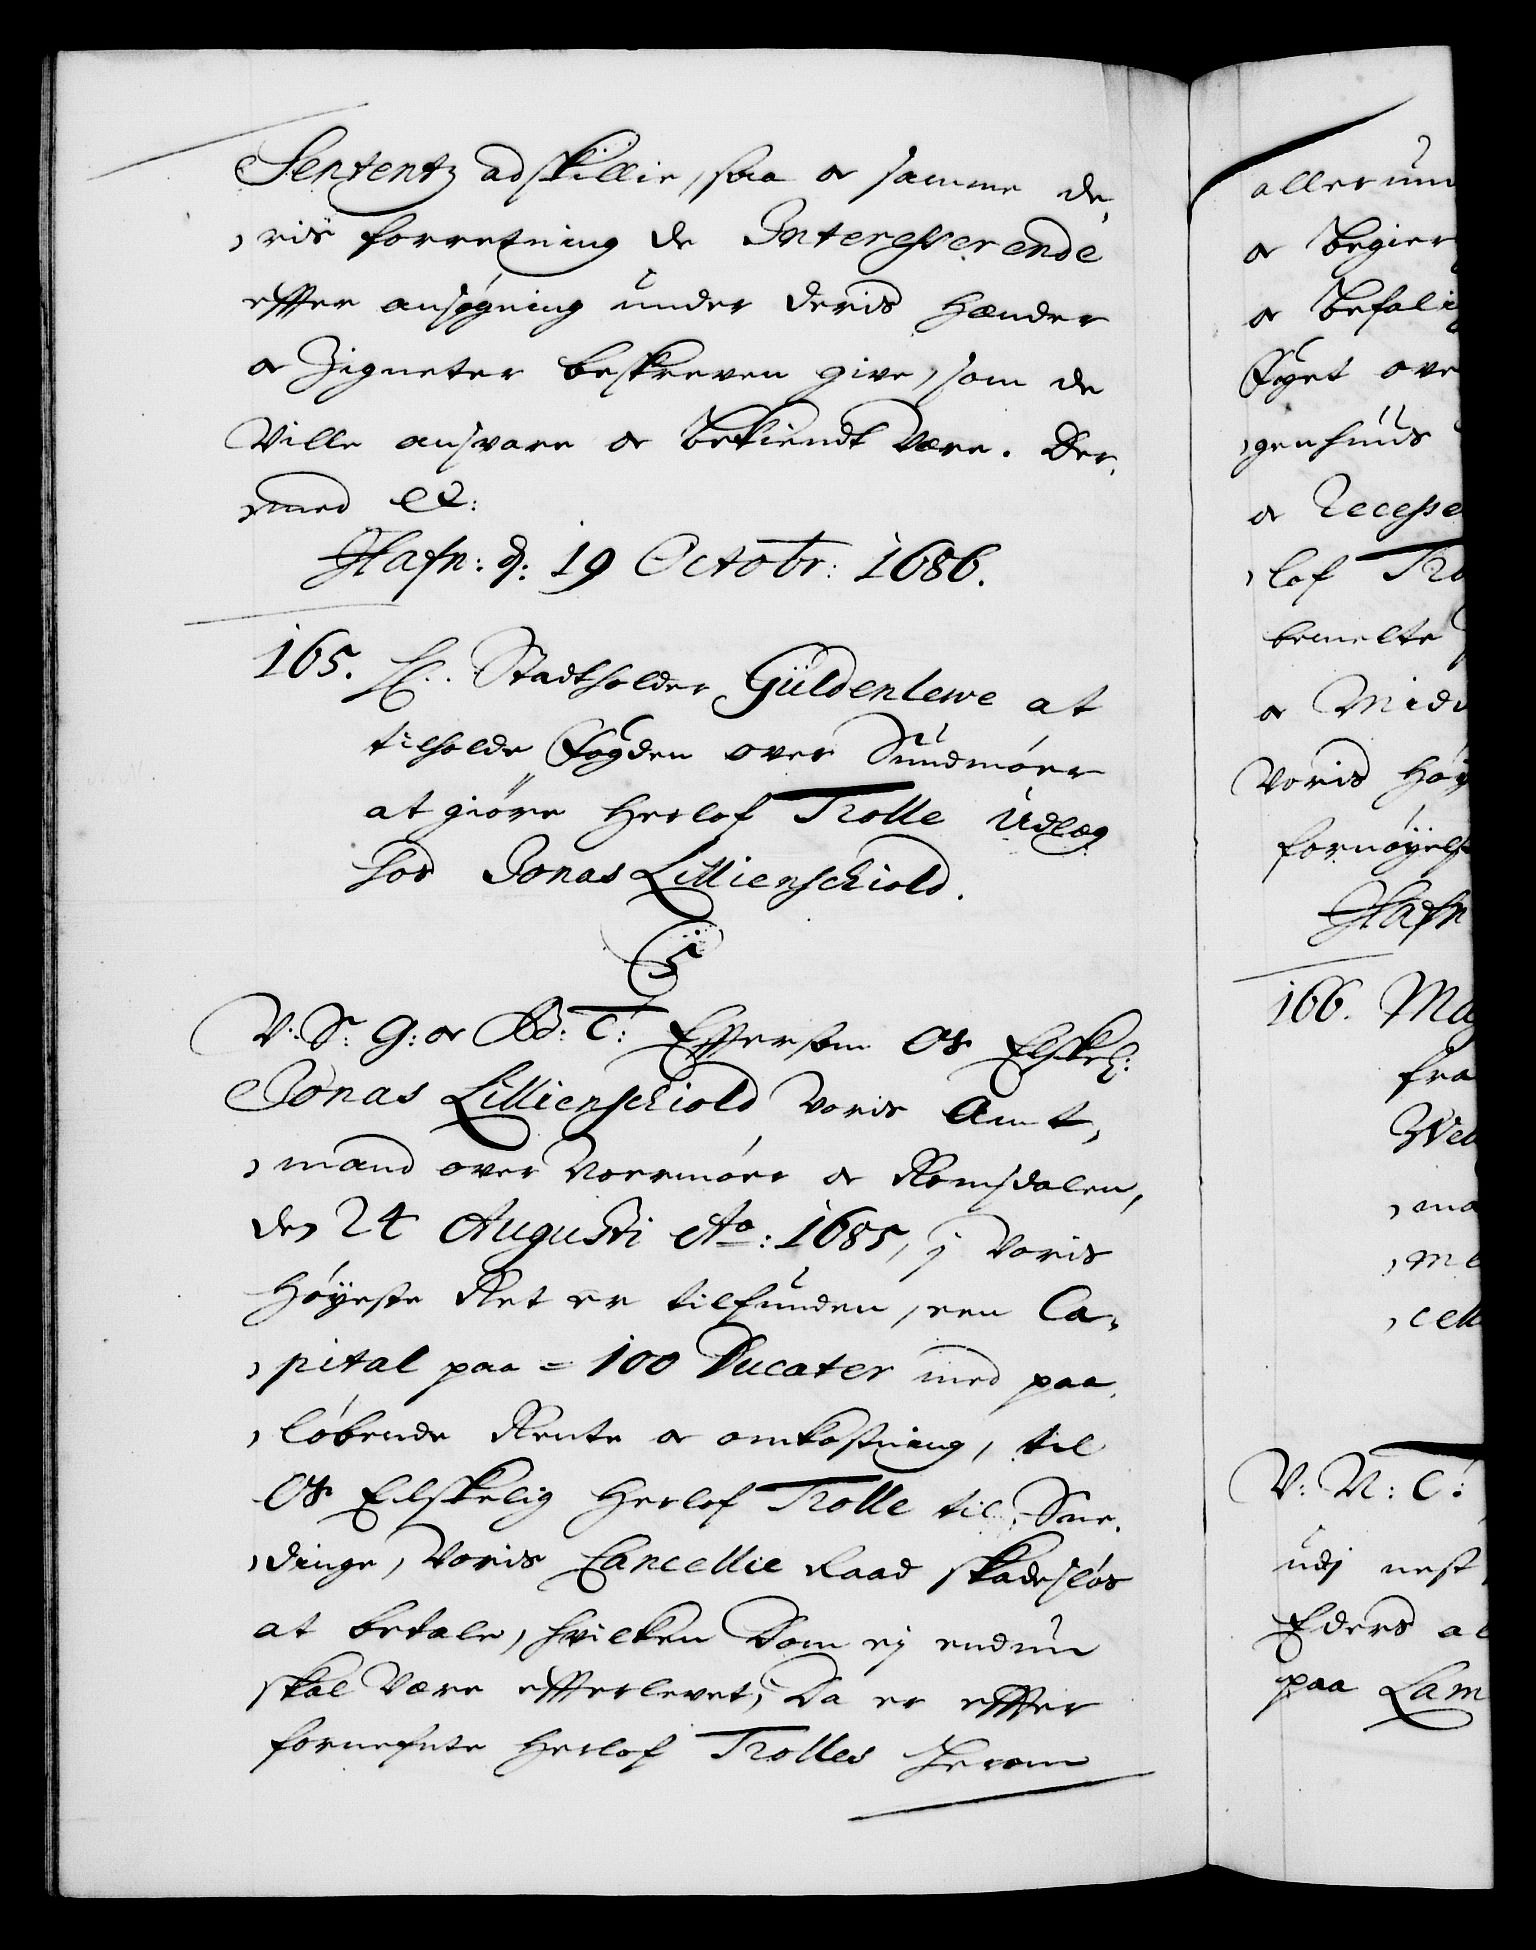 Sententz adskillie, saa oc samme de,
,ris forretning de Interesserende
effter ansøgning under deris Hænder
oc Zigneter beskreven give, som de
Ville ansvare oc bekiendt Være. Der,
,med &:
Hafn: d: 19 Octobr: 1686.
165. H.. Stadtholder Güldenlewe at
tilholde Fogden over Sundmöer
at giöre Herlof Trolle Udlæg
hos Jonas Lillienschiold.
C5
V. S: G: oc B: T: Effersom Os Elskel:
Jonas Lillienschiold Voris Amt,
,mand over Noermöer oc Romsdalen,
den 24 Augusti Ao: 1685, j Voris
Høyeste Ret er tilfunden, een Ca,
,pital paa = 100 Ducater med paa,
,løbende Rente oc omkostning, til
Os Elskelig Herlof Trolle til Sne,
,dinge, Voris Cancellie Raad skadesløs
at betale, hvilken Dom ej endnu
skal Være effterlevet, Da er effter
fornefnte Herlof Trolles herom
allerun
oc begier
oc befali
Foget ove
,genhuus
oc Recesse
,lof Tro
bemelte
oc Midu
Voris Høy
fornøyels
Hafn
166. Mag
fra
Wel
,ma
,me
,cell
V: N: T:
udj nest
Eders al
paa Lam